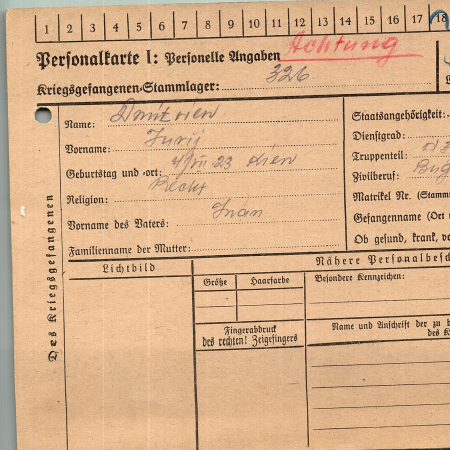 1 2 3 4 5 6 7 8 9 10 11 12 13 14 15 16 17 18
Personalkarte I: Personelle Angaben Achtung
Kriegsgefangenen-Stammlager: 326
Des Kriegsgefangenen
Name: Dmitrien
Vorname: Jurij
Geburtstag und -ort: 4/VII 23 Kien
Religion:
Vorname des Vaters: Iwan
Familienname der Mutter:
Staatsangehörigkeit:
Dienstgrad:
Truppenteil:
Zivilberuf:
Matrikel Nr. (Stamm
Gefangennahme (Ort
Ob gesund, krank,
Lichtbild
Nähere Personalbesch
Größe Haarfarbe
Besondere Kennzeichen:
Fingerabdruck
des rechten! Zeigefingers
Name und Anschrift der zu
des